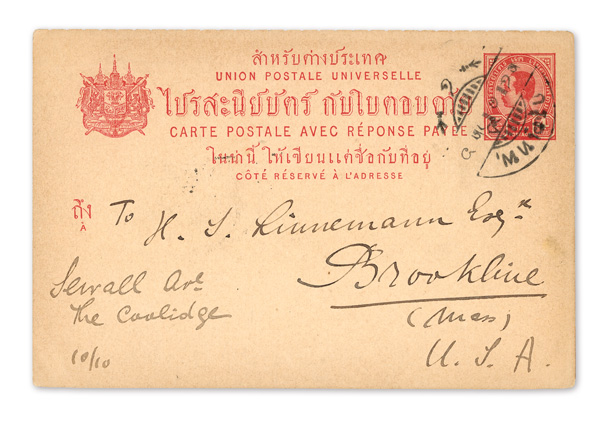 สำหรับต่างประเทศ
UNION POSTALE UNIVERSELLE
ไปรสะนียบัตร กับใบตอบ
CARTE POSTALE AVEC RÉPONSE PAYÉE
ให้เขียนแต่ชื่อกับที่อยู่
CÔTÉ RÉSERVÉ À L'ADRESSE
ถึง
A
To H. S. Linnemann Esqr
Brookline
(Mass)
U. S. A.
Sewall Ave
The Coolidge
10/10